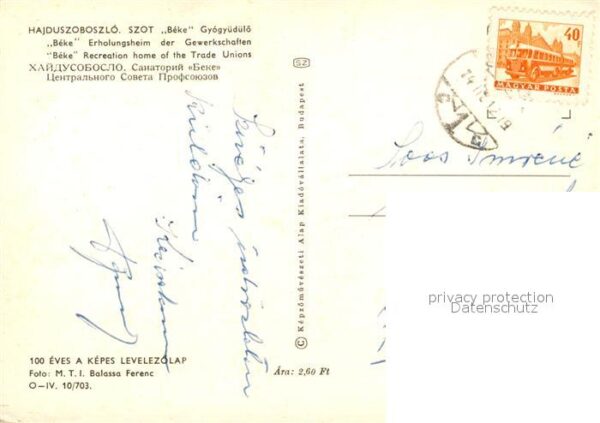 HAJDUSZOBOSZLÓ. SZOT „Béke” Gyógyüdülő
„Béke” Erholungsheim der Gewerkschaften
"Béke" Recreation home of the Trade Unions
ХАЙДУСОБОСЛО. Санаторий «Беке»
Центрального Совета Профсоюзов
SZ
40
MAGYAR POSTA
Soos Imréné
Szíves üdvözletem
küldöm
© Képzőművészeti Alap Kiadóvállalata, Budapest
privacy protection
Datenschutz
100 ÉVES A KÉPES LEVELEZŐLAP
Foto: M. T. I. Balassa Ferenc
O—IV. 10/703.
Ára: 2,60 Ft